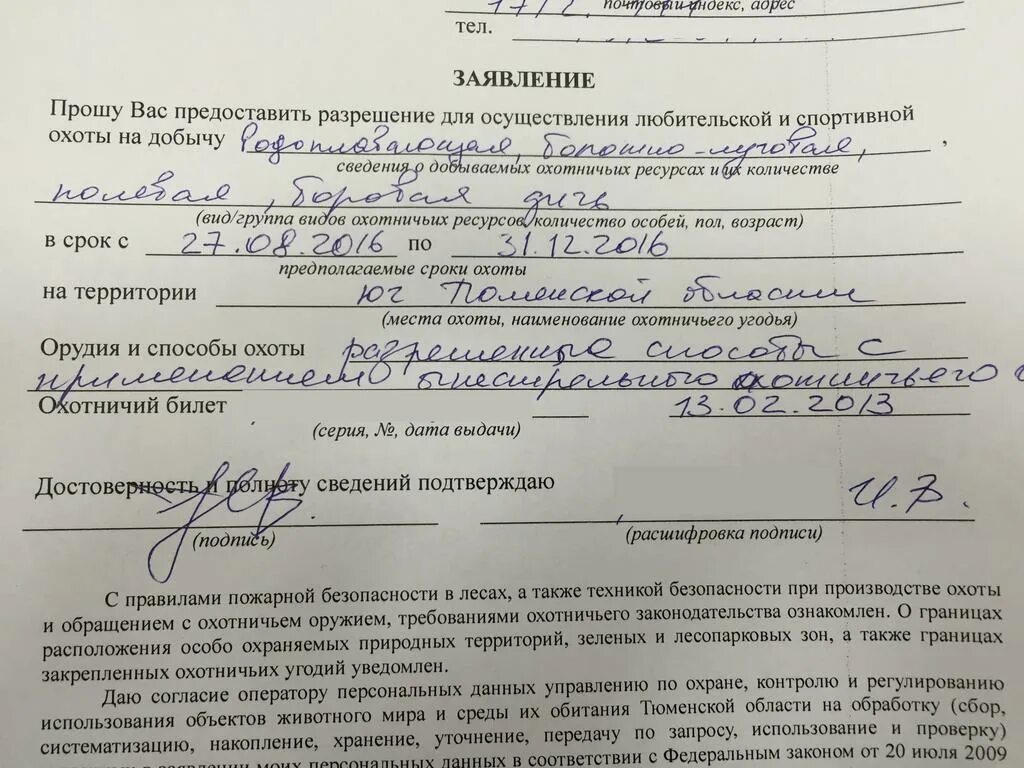 почтовый индекс, адрес
тел.
ЗАЯВЛЕНИЕ
Прошу Вас предоставить разрешение для осуществления любительской и спортивной
охоты на добычу водоплавающая, болотно-луговая,
сведения о добываемых охотничьих ресурсах и их количестве
полевая, боровая дичь
(вид/группа видов охотничьих ресурсов, количество особей, пол, возраст)
в срок с 27.08.2016 по 31.12.2016
предполагаемые сроки охоты
на территории юг Тюменской области
(места охоты, наименование охотничьего угодья)
Орудия и способы охоты разрешенные способы с
применением огнестрельного охотничьего
Охотничий билет 13.02.2013
(серия, №, дата выдачи)
Достоверность и полноту сведений подтверждаю
И.В.
(подпись) (расшифровка подписи)
С правилами пожарной безопасности в лесах, а также техникой безопасности при производстве охоты
и обращением с охотничьем оружием, требованиями охотничьего законодательства ознакомлен. О границах
расположения особо охраняемых природных территорий, зеленых и лесопарковых зон, а также границах
закрепленных охотничьих угодий уведомлен.
Даю согласие оператору персональных данных управлению по охране, контролю и регулированию
использования объектов животного мира и среды их обитания Тюменской области на обработку (сбор,
систематизацию, накопление, хранение, уточнение, передачу по запросу, использование и проверку)
в заявлении моих персональных данных в соответствии с Федеральным законом от 20 июля 2009